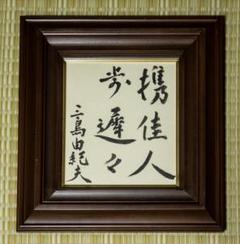 携佳人
歩遅々
三島由紀夫